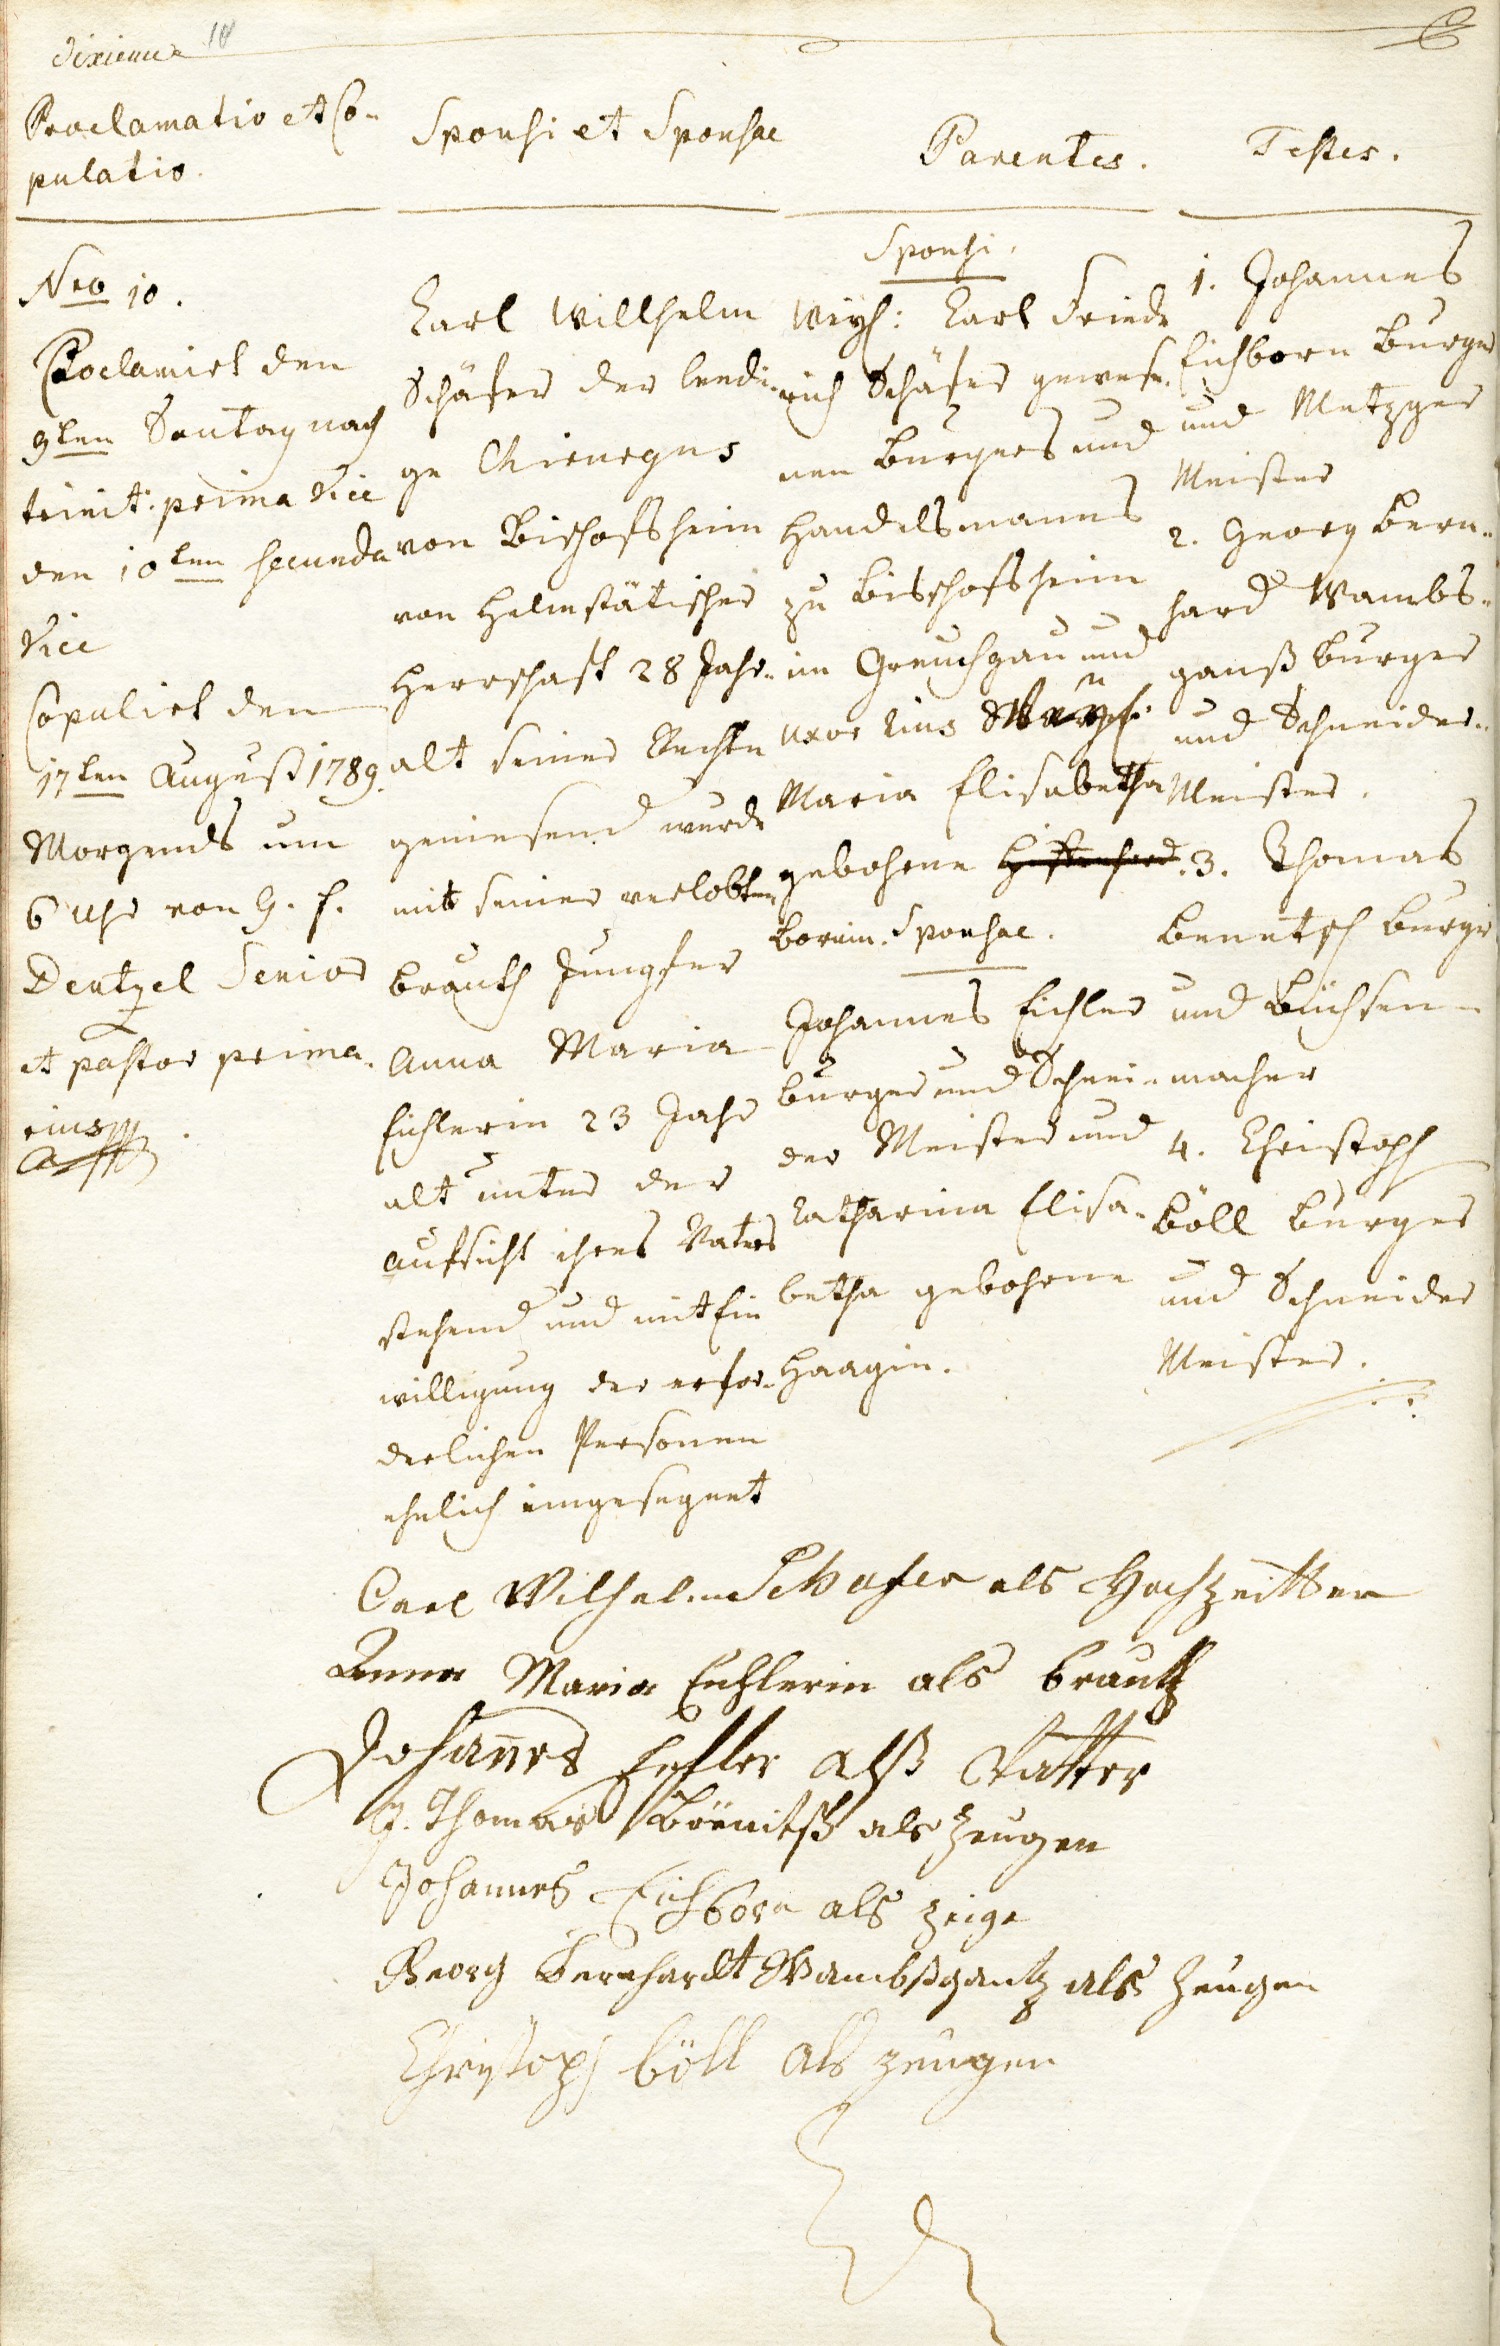 dixieme 10
Proclamatio et Co-
pulatio.
Sponsi et Sponsae
Parentes.
Testes.
Nro 10.
Proclamirt den
9ten Sontag nach
trinit: prima Vice
den 10ten secunda
Vice
Copulirt den
17ten August 1789.
Morgends um
6 Uhr von H. h.
Dentzel Senior
et pastor prima-
rius
Carl Willhelm
Schäfer der leedi-
ge Chirurgus
von Bischofsheim
von Helmstätischer
Herrschaft 28 Jahr
alt seiner Rechte
geniesend wurde
mit seiner verlobten
brauth Jungfer
Anna Maria
Eichlerin 23 Jahr
alt unter der
aufsicht ihres Vaters
stehend und mit Ein
willigung der erfor-
derlichen Personen
ehelich eingesegnet
Sponsi.
Weyl: Carl Friede
rich Schäfer gewese-
nen burgers und
Handelsmanns
zu Bischofsheim
im Greuchgau und
uxor eius
Maria Elisabetha
gebohrne
Bormin. Sponsae.
Johannes Eichler
burger und Schnei-
der Meister und
Catharina Elisa-
betha gebohrne
Haagin.
1. Johannes
Eichborn burger
und Metzger
Meister
2. Georg bern-
hard Wambs-
ganß burger
und Schneider-
Meister.
3. Thomas
Benetsch burgr
und büchsen-
macher
4. Christoph
böll burger
und Schneider
Meister.
Carl Wilhelm Schafer als Hochzeitter
Anna Maria Eichlerin als brauth
Johannes Eichler alß Vatter
J. Thomas Bönitsch als Zeugen
Johannes Eichborn als zeige
Georg Bernhardt Wambßgantz als Zeugen
Christoph böll als zeugen